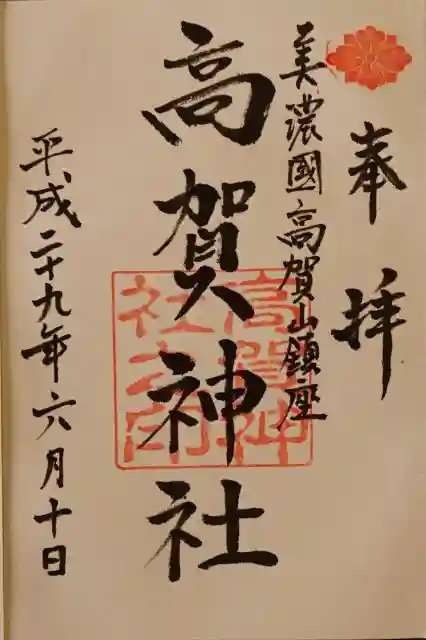 奉拝
美濃國高賀山鎮座
高賀神社
高賀神
社之印
平成二十九年六月十日